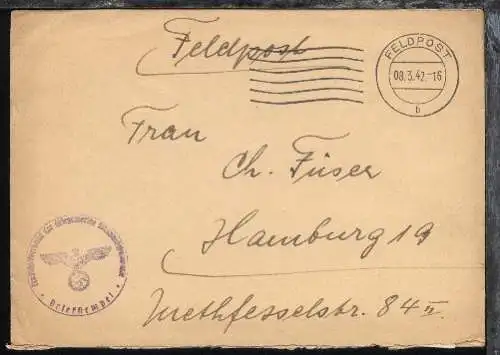 Feldpost
FELDPOST
08.3.42.-16
b
Frau
Ch. Füser
Hamburg 19
Methfesselstr. 84 II.
Briefstempel